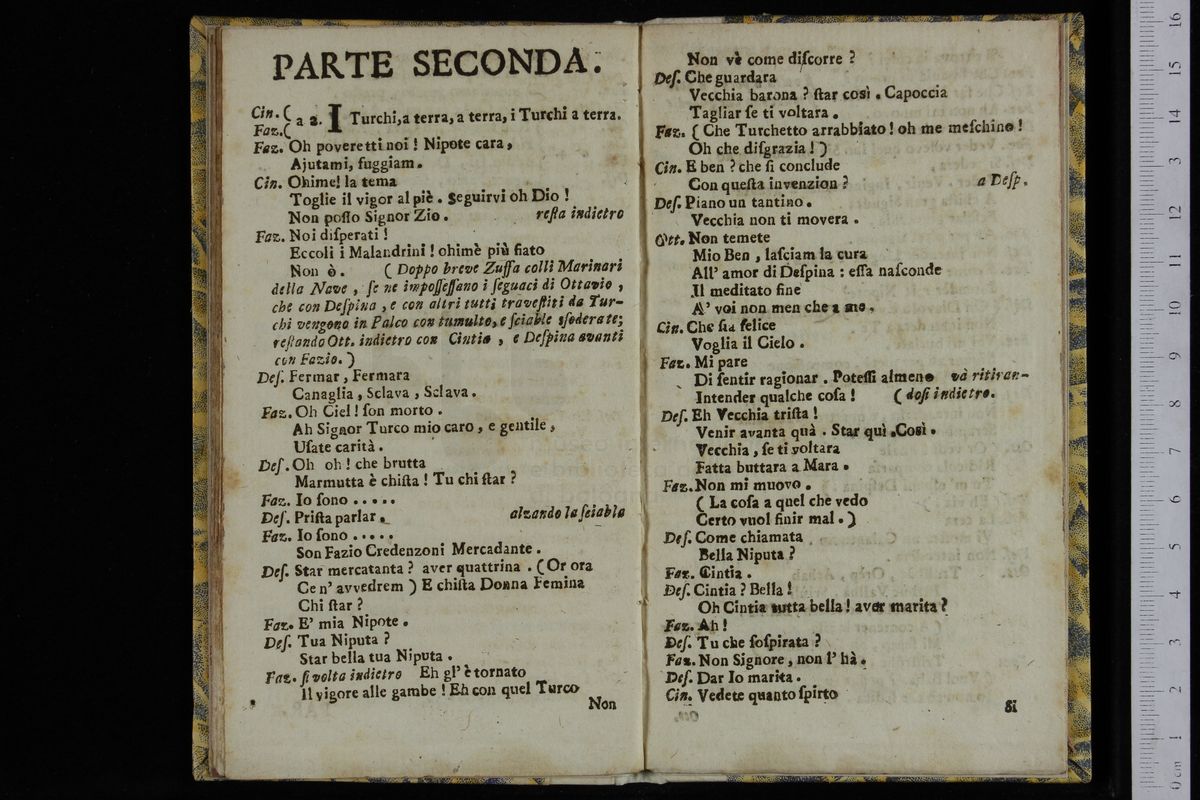 PARTE SECONDA.
Cin. ( a 2. I Turchi, a terra, a terra, i Turchi a terra.
Faz. (
Faz. Oh poveretti noi ! Nipote cara,
Ajutami, fuggiam.
Cin. Ohime! la tema
Toglie il vigor al piè. Seguirvi oh Dio !
Non poſſo Signor Zio. reſta indietro
Faz. Noi diſperati !
Eccoli i Malandrini ! ohimè più fiato
Non è. ( Doppo breve Zuffa colli Marinari
della Nave, ſe ne impoſſeſſano i ſeguaci di Ottavio,
che con Deſpina, e con altri tutti traveſtiti da Tur-
chi vengono in Palco con tumulto, e ſciable sfoderate;
reſtando Ott. indietro con Cintia, e Deſpina avanti
con Fazio. )
Deſ. Fermar, Fermara
Canaglia, Sclava, Sclava.
Faz. Oh Ciel ! ſon morto.
Ah Signor Turco mio caro, e gentile,
Uſate carità.
Deſ. Oh oh ! che brutta
Marmutta è chiſta ! Tu chi ſtar ?
Faz. Io ſono . . . . .
Deſ. Priſta parlar. alzando la ſciabla
Faz. Io ſono . . . . .
Son Fazio Credenzoni Mercadante.
Deſ. Star mercatanta ? aver quattrina. ( Or ora
Ce n' avvedrem ) E chiſta Donna Femina
Chi ſtar ?
Faz. E' mia Nipote.
Deſ. Tua Niputa ?
Star bella tua Niputa.
Faz. ſi volta indietro Eh gl' è tornato
Il vigore alle gambe ! Eh con quel Turco
Non
Non vè come diſcorre ?
Deſ. Che guardara
Vecchia barona ? ſtar così. Capoccia
Tagliar ſe ti voltara.
Faz. ( Che Turchetto arrabbiato ! oh me meſchino !
Oh che diſgrazia ! )
Cin. E ben ? che ſi conclude
Con queſta invenzion ? a Deſp.
Deſ. Piano un tantino.
Vecchia non ti movera.
Ott. Non temete
Mio Ben, laſciam la cura
All' amor di Deſpina : eſſa naſconde
Il meditato fine
A' voi non men che a me.
Cin. Che ſia felice
Voglia il Cielo.
Faz. Mi pare
Di ſentir ragionar. Poteſſi almeno và ritiran-
Intender qualche coſa ! ( doſi indietro.
Deſ. Eh Vecchia triſta !
Venir avanta quà. Star quì. Così.
Vecchia, ſe ti voltara
Fatta buttara a Mara.
Faz. Non mi muovo.
( La coſa a quel che vedo
Certo vuol finir mal. )
Deſ. Come chiamata
Bella Niputa ?
Faz. Cintia.
Deſ. Cintia ? Bella !
Oh Cintia tutta bella ! aver marita ?
Faz. Ah !
Deſ. Tu che ſoſpirata ?
Faz. Non Signore, non l' hà.
Deſ. Dar Io marita.
Cin. Vedete quanto ſpirto
Si